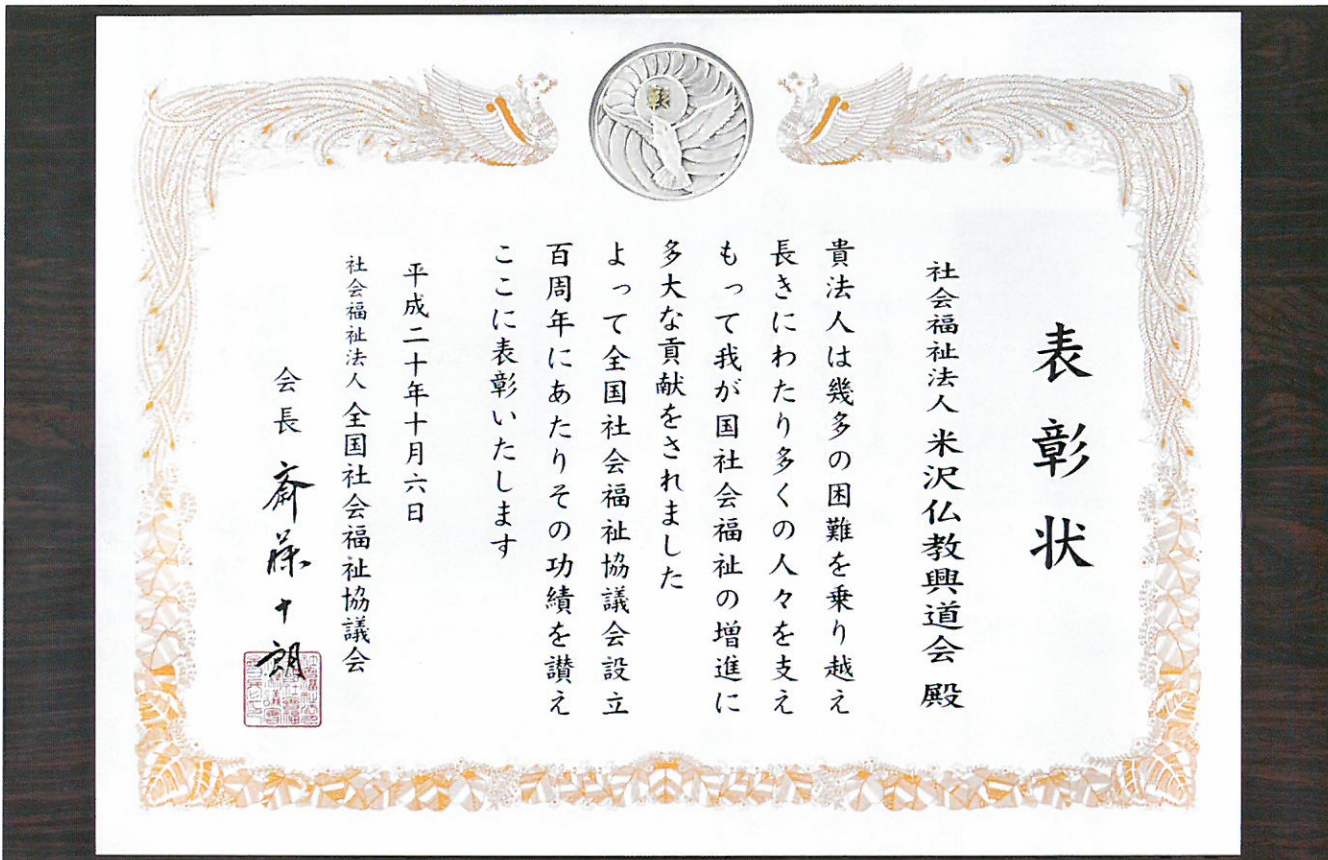 表彰状
社会福祉法人 米沢仏教興道会 殿
貴法人は幾多の困難を乗り越え
長きにわたり多くの人々を支え
もって我が国社会福祉の増進に
多大な貢献をされました
よって全国社会福祉協議会設立
百周年にあたりその功績を讃え
ここに表彰いたします
平成二十年十月六日
社会福祉法人 全国社会福祉協議会
会長 斎藤十朗
彰